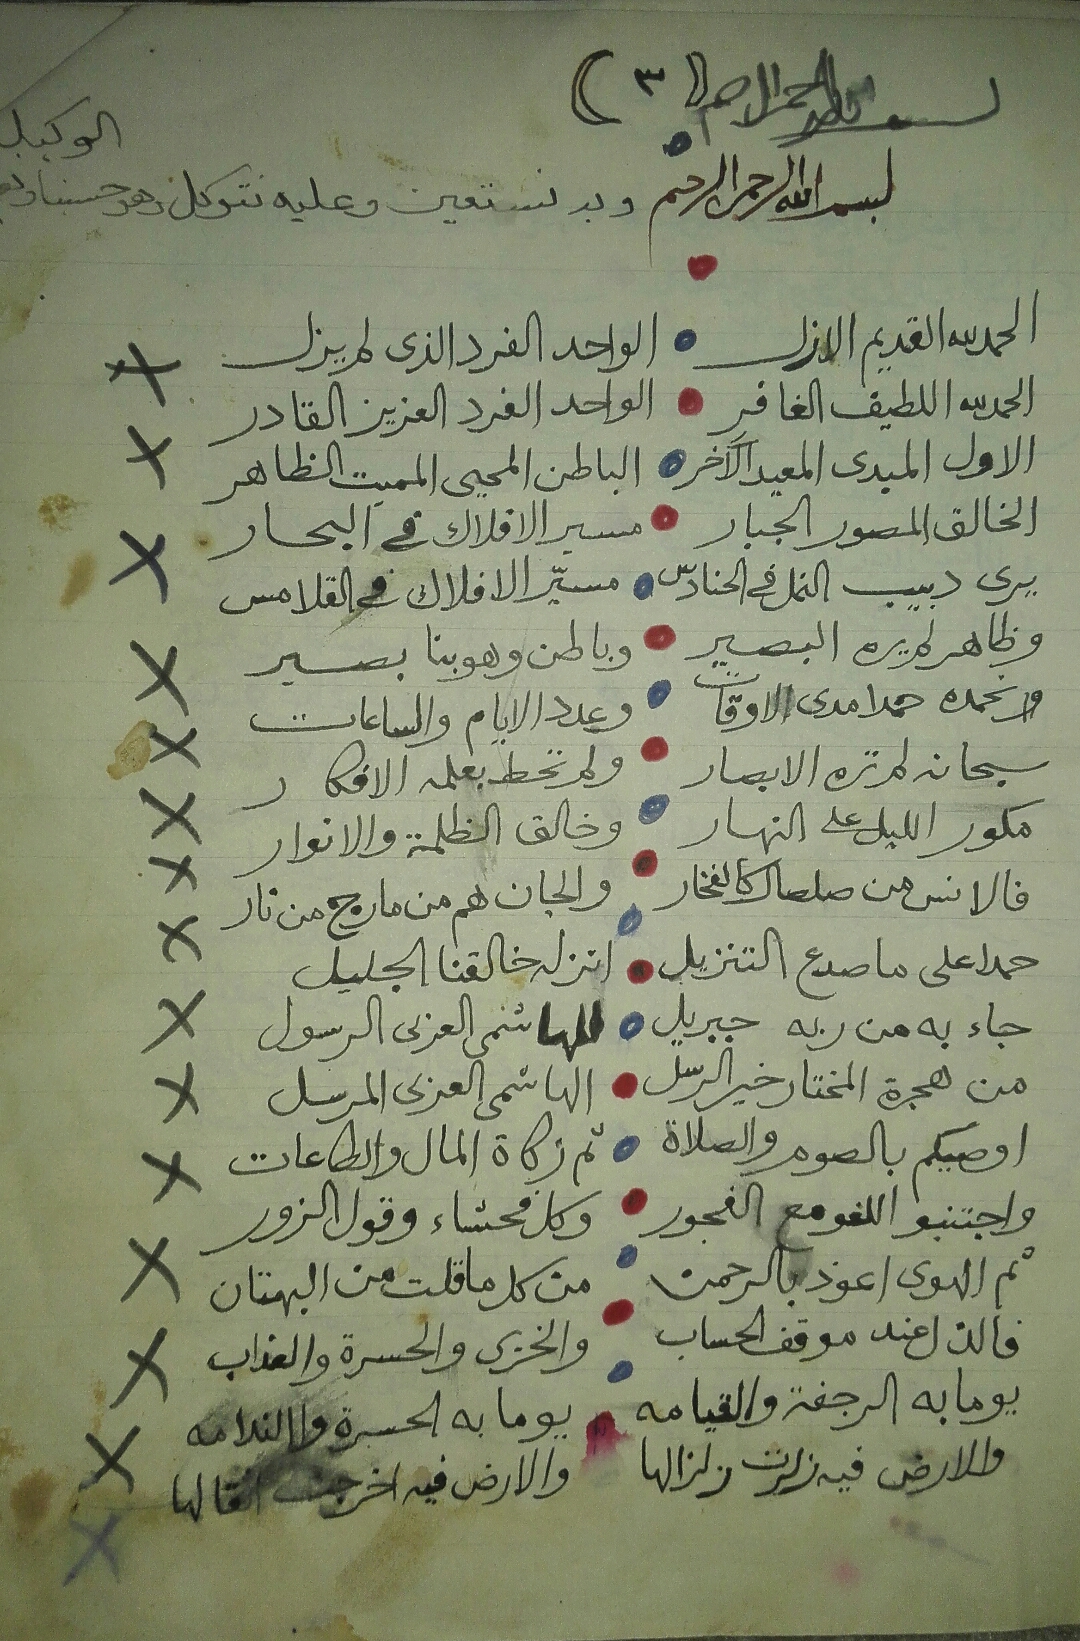 بسم الله الرحمن الرحيم (٣)
بسم الله الرحمن الرحيم وبه نستعين وعليه نتوكل وهو حسبنا ونعم
الوكيل
الحمدلله القديم الازل الواحد الفرد الذى لم يزل
الحمدلله اللطيف الغافر الواحد الفرد العزيز القادر
الاول المبدى المعيد الآخر الباطن المحيى المميت الظاهر
الخالق المصور الجبار مسير الافلاك في البحار
يرى دبيب النمل في الحنادس مسيّر الافلاك في القلامس
وظاهر لم يره البصير وباطن وهو بنا بصير
ونحمده حمدا مدى الاوقات وعدد الايام والساعات
سبحانه لم تره الابصار ولم تحط بعلمه الافكار
مكور الليل على النهار وخالق الظلمة والانوار
فالانس من صلصال كالفخار والجان هم من مارج من نار
حمدا على ما صدع التنزيل انزله خالقنا الجليل
جاء به من ربه جبريل للهاشمى العربى الرسول
من هجرة المختار خير الرسل الهاشمى العربى المرسل
اوصيكم بالصوم والصلاة ثم زكاة المال والطاعات
واجتنبو اللغو مع الفجور وكل فحشاء وقول الزور
ثم الهوى اعوذ بالرحمن من كل ما قلت من البهتان
فالذل عند موقف الحساب والخزى والحسرة والعذاب
يوما به الرجفة والقيامه يوما به الحسرة والندامه
والارض فيه زلزلت زلزالها والارض فيه اخرجت اثقالها